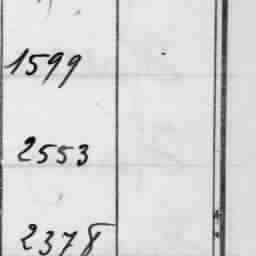 1599
2553
2378